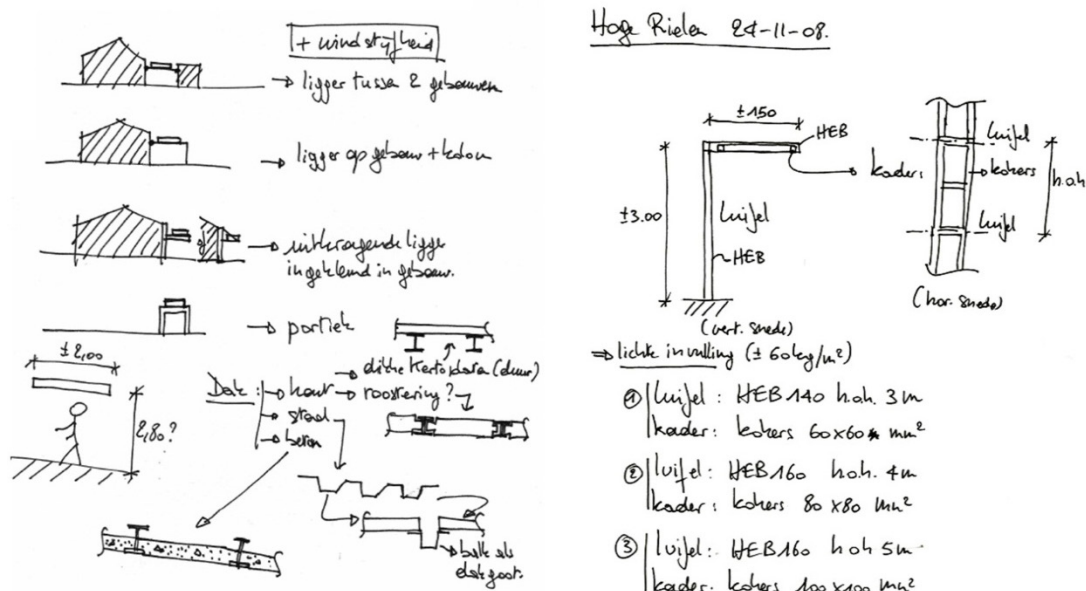 + windstijfheid
→ ligger tussen 2 gebouwen
→ ligger op gebouw + kolom
→ uitkragende ligger
ingeklemd in gebouw.
→ portiek
± 2,00
2,80?
Dak : → hout → roostering?
→ dikke Kerto platen (duur)
→ staal
→ beton
balk als
dakgoot.
Hoge Rielen 24-11-08.
± 150
HEB
± 3.00
luifel
HEB
(vert. snede)
kader:
luifel
kokers
h.o.h
luifel
(hor. snede)
⇒ lichte invulling (± 60 kg/m²)
① luifel : HEB 140 h.o.h. 3 m
kader : kokers 60x60 mm²
② luifel : HEB 160 h.o.h. 4 m
kader : kokers 80 x 80 mm²
③ luifel : HEB 160 h.o.h 5 m
kader : kokers 100 x 100 mm²